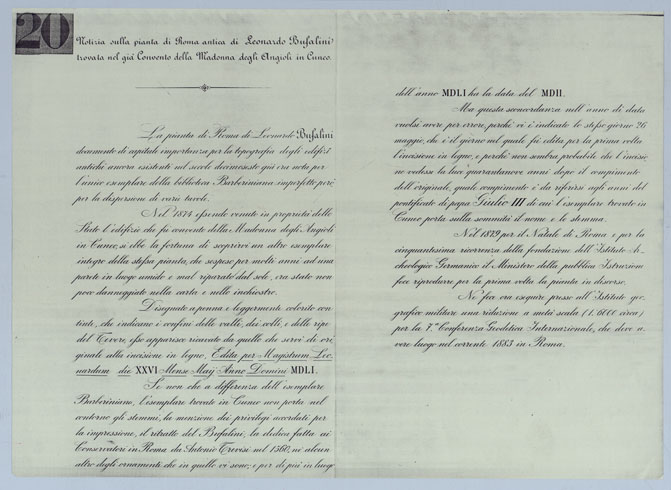 20
Notizia sulla pianta di Roma antica di Leonardo Bufalini
trovata nel già Convento della Madonna degli Angioli in Cuneo.
La pianta di Roma di Leonardo Bufalini
documento di capitale importanza per la topografia degli edifizi
antichi ancora esistenti nel secolo decimosesto qui era nota per
l'unico esemplare della biblioteca Barberiniana imperfetto però
per la dispersione di varie tavole.
Nel 1874 essendo venuto in proprietà dello
Stato l'edifizio che fu convento della Madonna degli Angioli
in Cuneo, si ebbe la fortuna di scoprirvi un altro esemplare
integro della stessa pianta, che sospeso per molti anni ad una
parete in luogo umido e mal riparato dal sole, era stato non
poco danneggiato nella carta e nelle inchiostro.
Disegnato a penna e leggermente colorito con
tinte, che indicano i confini delle valli, dei colli, e delle ripe
del Tevere, esso apparisce ricavato da quello che servì di ori
ginale alla incisione in legno, Edita per Magistrum Leo
nardum die XXVI Mense Maij Anno Domini MDLI.
Se non che a differenza dell'esemplare
Barberiniano, l'esemplare trovato in Cuneo non porta nel
contorno gli stemmi, la menzione dei privilegi accordati per
la impressione, il ritratto del Bufalini, la dedica fatta ai
Conservatori in Roma da Antonio Trevisi nel 1560, nè alcun
altro degli ornamenti che in quello vi sono, e per di più in luogo
dell'anno MDLI ha la data del MDII.
Ma questa sconcordanza nell'anno di data
vuolsi avere per errore, perchè vi è indicato lo stesso giorno 26
maggio, che è il giorno nel quale fu edita per la prima volta
l'incisione in legno, e perchè non sembra probabile che l'incisio
ne vedesse la luce quarantanove anni dopo il compimento
dell'originale, quale compimento è da riferirsi agli anni del
pontificato di papa Giulio III di cui l'esemplare trovato in
Cuneo porta sulla sommità il nome e lo stemma.
Nel 1879 per il Natale di Roma e per la
cinquantesima ricorrenza della fondazione dell'Istituto Ar-
cheologico Germanico il Ministero della pubblica Istruzione
fece riprodurre per la prima volta la pianta in discorso.
Ne fece ora eseguire presso all'Istituto geo-
grafico militare una riduzione a metà scala (1.6000 circa)
per la 7.ª Conferenza Geodetica Internazionale, che deve a-
vere luogo nel corrente 1883 in Roma.